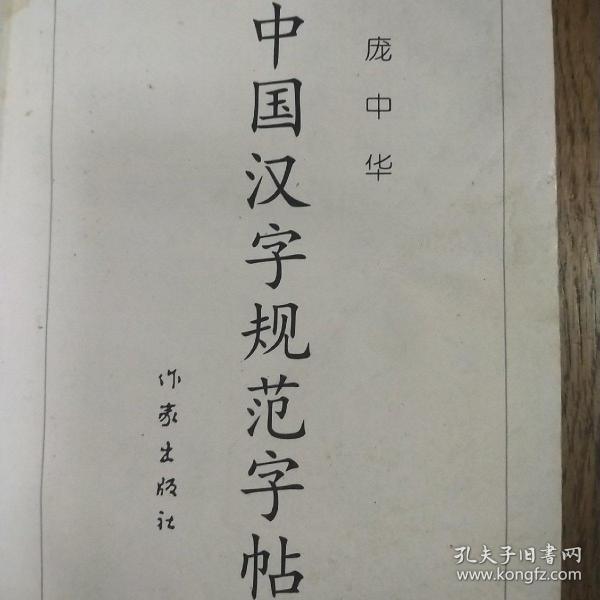 庞中华
中国汉字规范字帖
作家出版社
孔夫子旧书网
www.kongfz.com